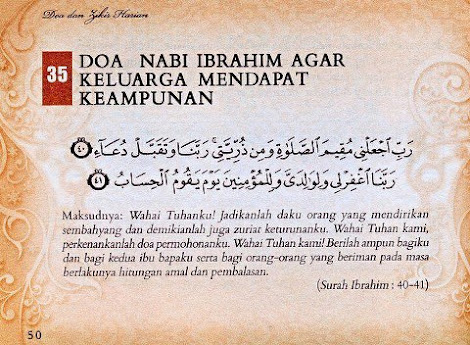 Doa dan Zikir Harian
35
DOA NABI IBRAHIM AGAR
KELUARGA MENDAPAT
KEAMPUNAN
رَبِّ ٱجْعَلْنِى مُقِيمَ ٱلصَّلَوٰةِ وَمِن ذُرِّيَّتِى ۚ رَبَّنَا وَتَقَبَّلْ دُعَآءِ ﴿٤٠﴾
رَبَّنَا ٱغْفِرْ لِى وَلِوَٰلِدَىَّ وَلِلْمُؤْمِنِينَ يَوْمَ يَقُومُ ٱلْحِسَابُ ﴿٤١﴾
Maksudnya: Wahai Tuhanku! Jadikanlah daku orang yang mendirikan
sembahyang dan demikianlah juga zuriat keturunanku. Wahai Tuhan kami,
perkenankanlah doa permohonanku. Wahai Tuhan kami! Berilah ampun bagiku
dan bagi kedua ibu bapaku serta bagi orang-orang yang beriman pada masa
berlakunya hitungan amal dan pembalasan.
(Surah Ibrahim : 40-41)
50